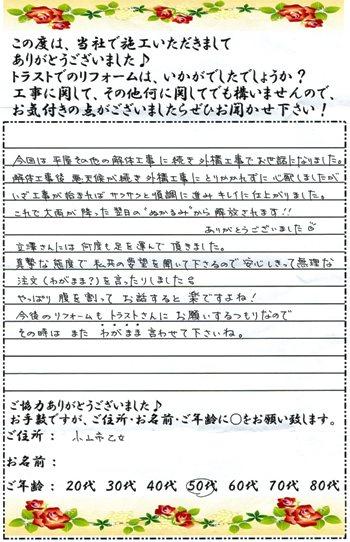 この度は、当社で施工いただきまして
ありがとうございました♪
トラストでのリフォームは、いかがでしたでしょうか？
工事に関して、その他何に関してでも構いませんので、
お気付きの点がございましたらぜひお聞かせ下さい！
今回は平屋その他の解体工事に続き外構工事でお世話になりました。
解体工事後悪天候が続き外構工事にとりかかれずに心配しましたが
いざ工事が始まればサクサクと順調に進みキレイに仕上がりました。
これで大雨が降った翌日の"ぬかるみ"から解放されます!!
ありがとうございました
立澤さんには何度も足を運んで頂きました。
真摯な態度で私共の要望を聞いて下さるので安心しきって無理な
注文(わがまま?)を言ったりしました
やっぱり腹を割ってお話すると楽ですよね!
今後のリフォームもトラストさんにお願いするつもりなので
その時はまたわがまま言わせて下さいね。
ご協力ありがとうございました♪
お手数ですが、ご住所・お名前・ご年齢に○をお願い致します。
ご住所：小山市乙女
お名前：
ご年齢：20代 30代 40代 50代 60代 70代 80代